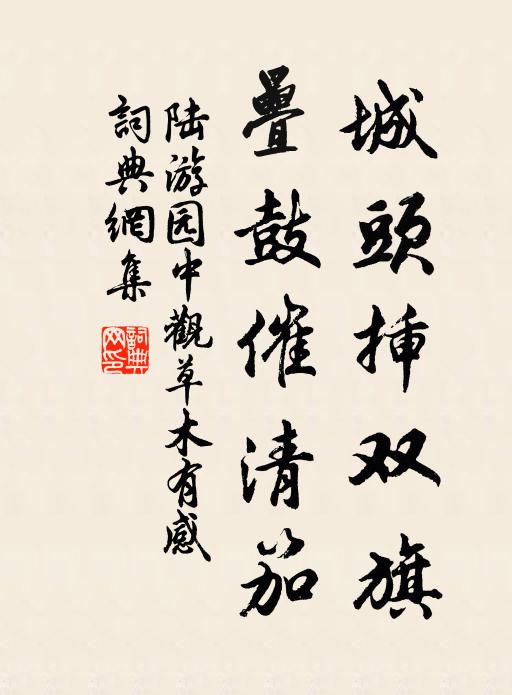 城頭挿双旗
疊鼓催清笳
陆游园中觀草木有感
詞典網集
詞典网印